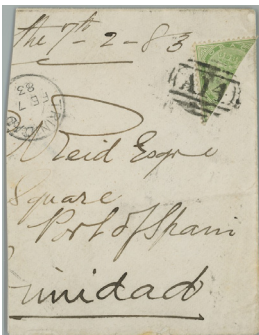 the 7th - 2 - 83
A14
FE 7
83
Reid Esqre
Square
Port of Spain
rinidad